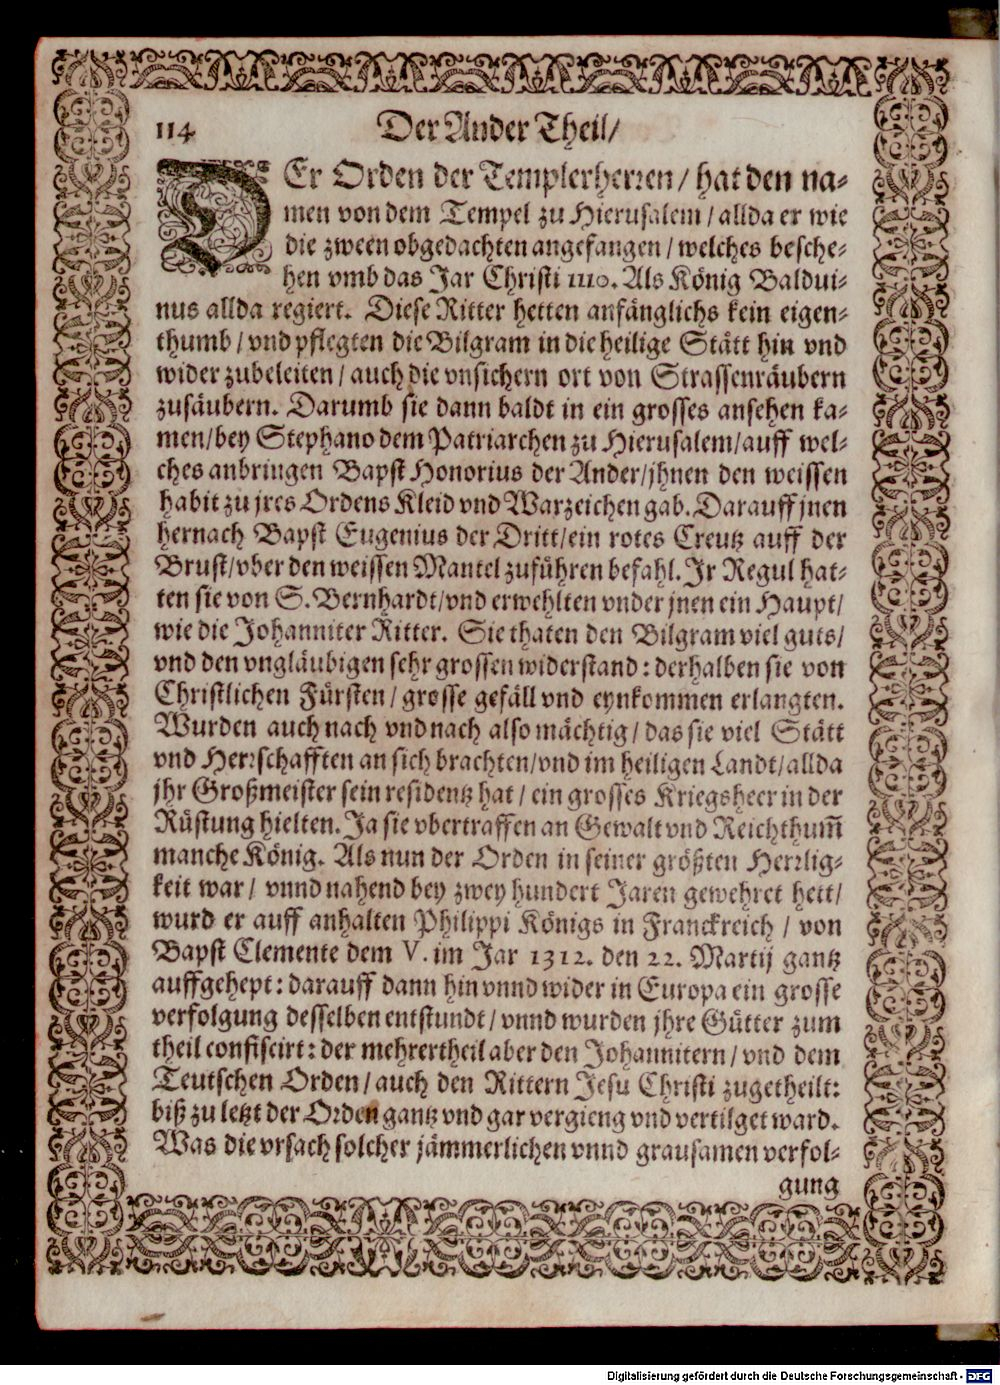 114 Der Ander Theil/
DEr Orden der Templerherren / hat den na-
men von dem Tempel zu Hierusalem / allda er wie
die zween obgedachten angefangen / welches besche-
hen vmb das Jar Christi 1110. Als König Baldui-
nus allda regiert. Diese Ritter hetten anfänglichs kein eigen-
thumb / vnd pflegten die Bilgram in die heilige Stätt hin vnd
wider zubeleiten / auch die vnsichern ort von Strassenräubern
zusäubern. Darumb sie dann baldt in ein grosses ansehen ka-
men/bey Stephano dem Patriarchen zu Hierusalem/auff wel-
ches anbringen Bapst Honorius der Ander/jhnen den weissen
habit zu jres Ordens Kleid vnd Warzeichen gab. Darauff jnen
hernach Bapst Eugenius der Dritt/ein rotes Creutz auff der
Brust/vber den weissen Mantel zuführen befahl. Jr Regul hat-
ten sie von S. Bernhardt/vnd erwehlten vnder jnen ein Haupt/
wie die Johanniter Ritter. Sie thaten den Bilgram viel guts/
vnd den vngläubigen sehr grossen widerstand: derhalben sie von
Christlichen Fürsten / grosse gefäll vnd eynkommen erlangten.
Wurden auch nach vnd nach also mächtig / das sie viel Stätt
vnd Herrschafften an sich brachten/vnd im heiligen Landt/allda
jhr Großmeister sein residentz hat / ein grosses Kriegsheer in der
Rüstung hielten. Ja sie vbertraffen an Gewalt vnd Reichthum̃
manche König. Als nun der Orden in seiner größten Herrlig-
keit war / vnnd nahend bey zwey hundert Jaren gewehret hett/
wurd er auff anhalten Philippi Königs in Franckreich / von
Bapst Clemente dem V. im Jar 1312. den 22. Martij gantz
auffgehept: darauff dann hin vnnd wider in Europa ein grosse
verfolgung desselben entstundt / vnnd wurden jhre Gütter zum
theil confiscirt: der mehrertheil aber den Johannitern / vnd dem
Teutschen Orden / auch den Rittern Jesu Christi zugetheilt:
biß zu letzt der Orden gantz vnd gar vergieng vnd vertilget ward.
Was die vrsach solcher jämmerlichen vnnd grausamen verfol-
gung
Digitalisierung gefördert durch die Deutsche Forschungsgemeinschaft - DFG